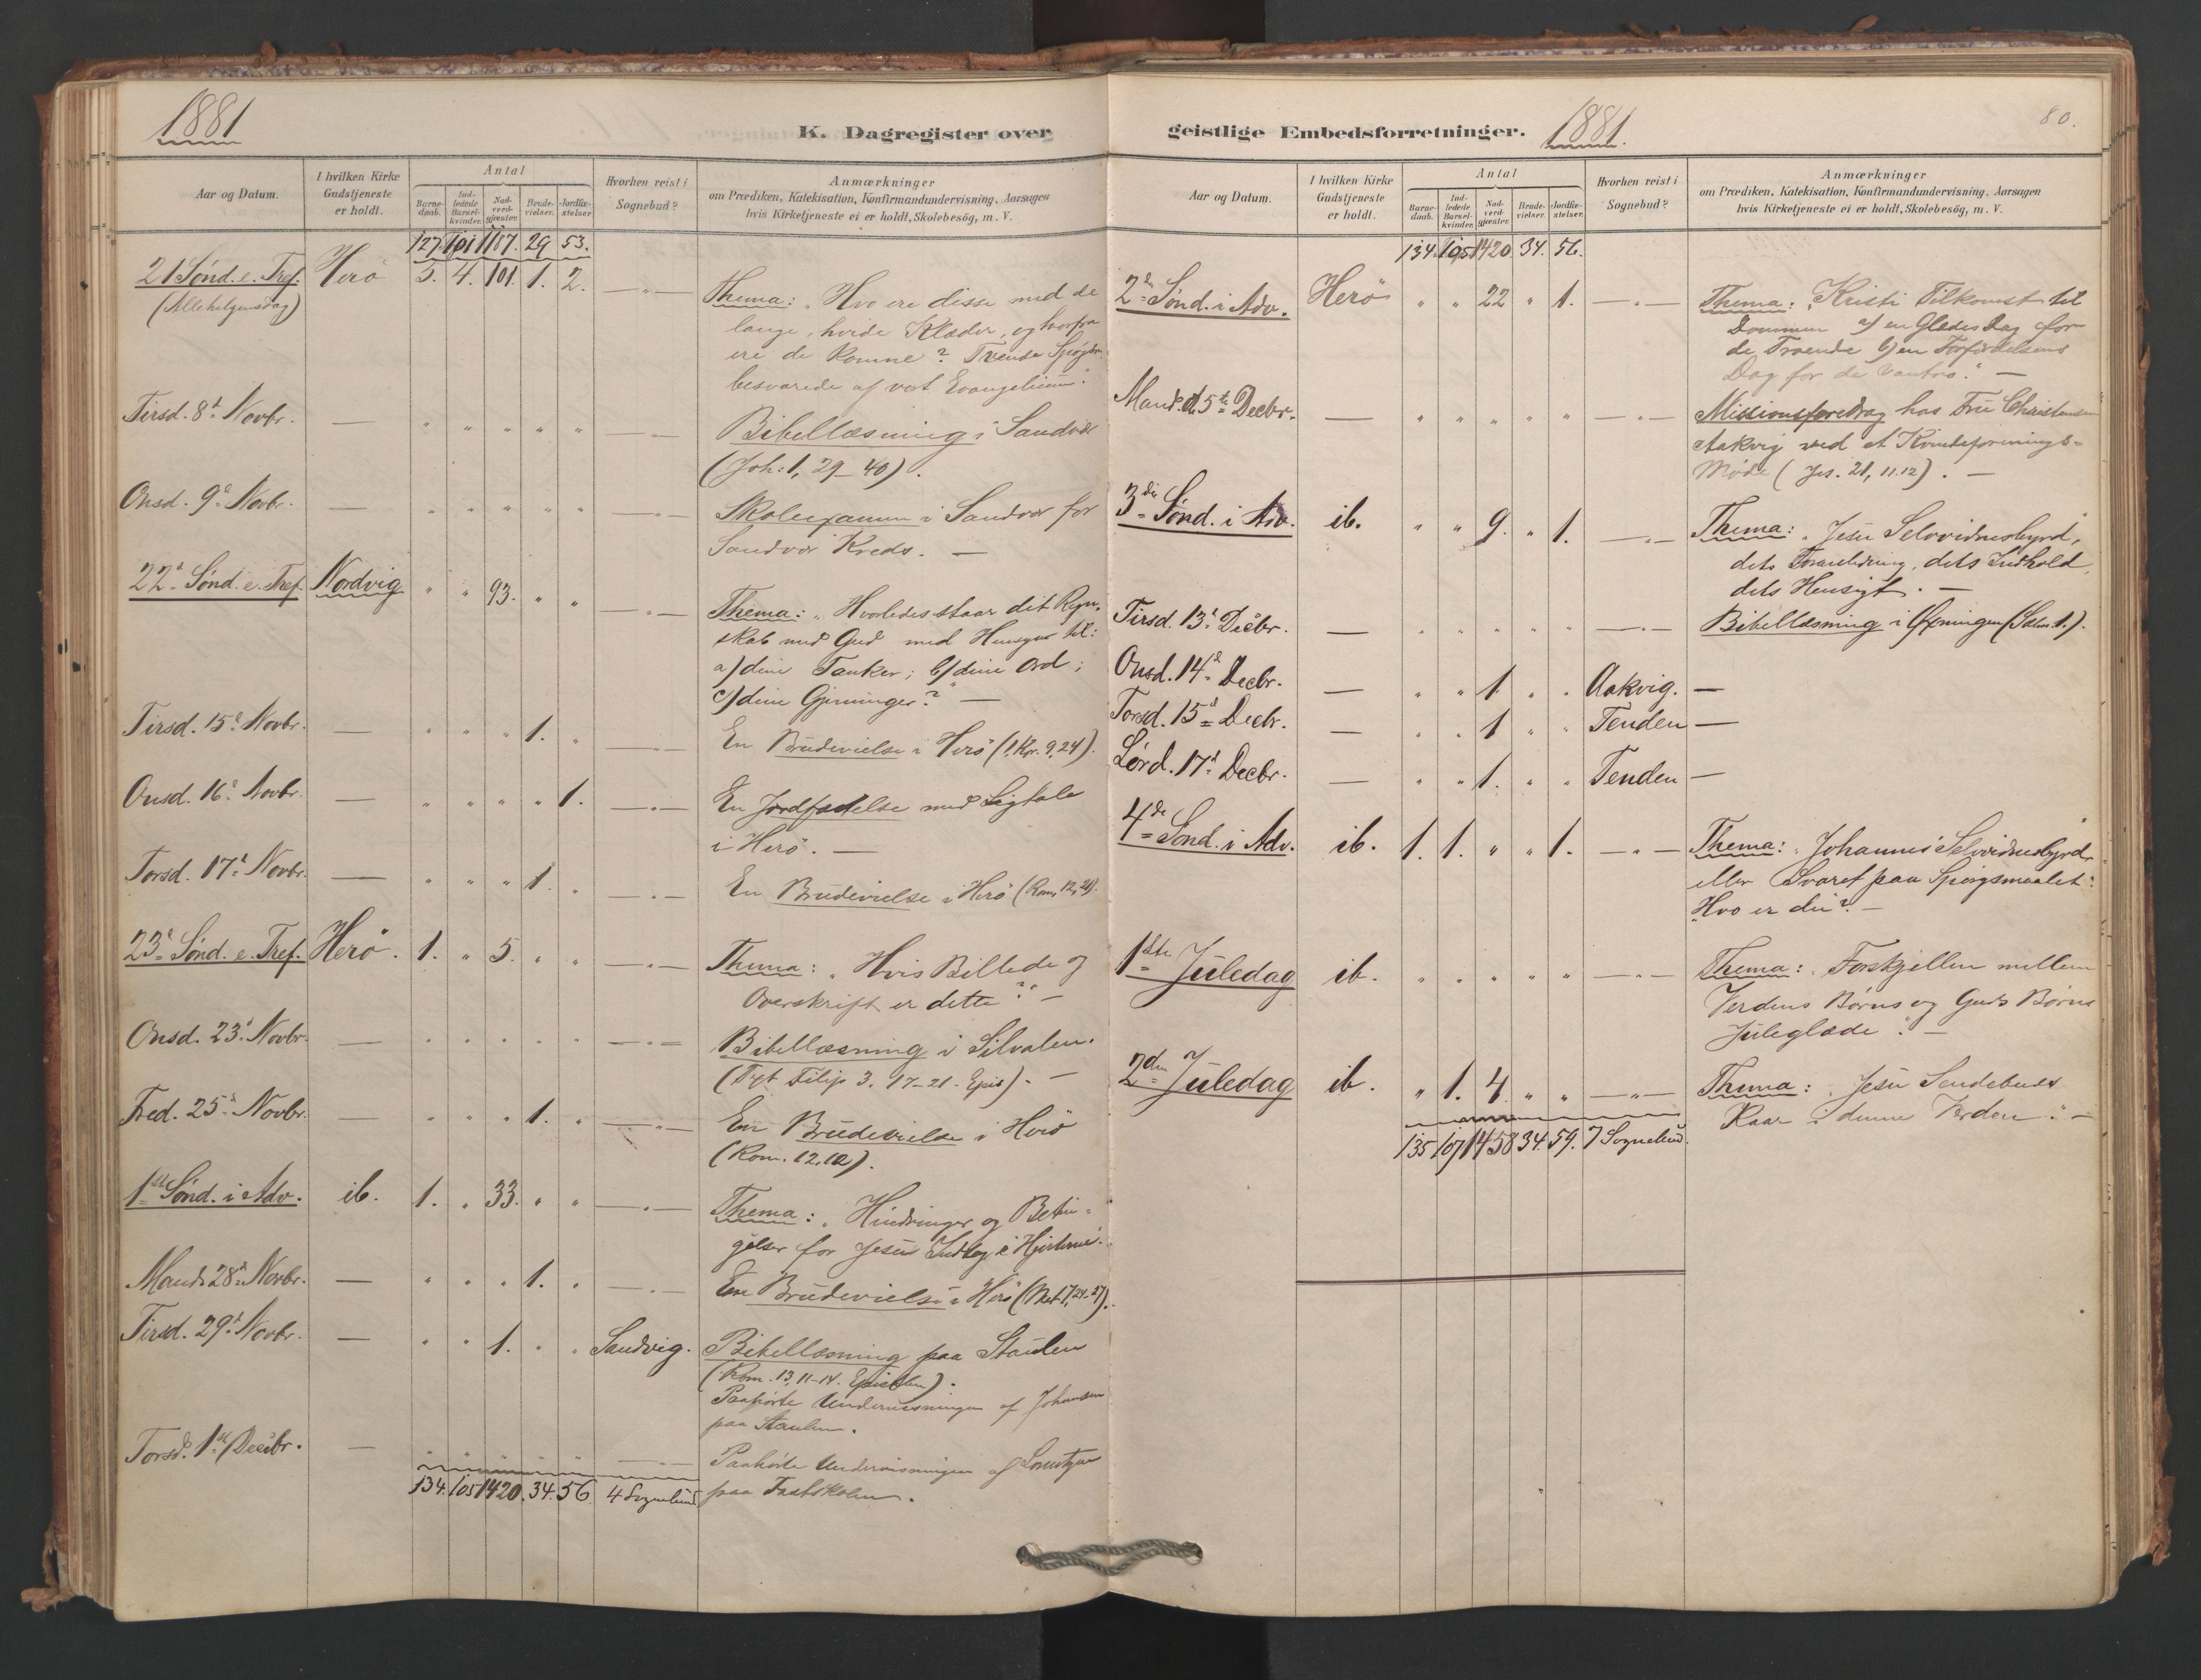 1881
K. Dagregister over
Aar og Datum.
I hvilken Kirke Gudstjeneste er holdt.
Antal
Barne-daab.
Ind-ledede Barsel-kvinder.
Nad-verd-gjæster.
Brude-vielser.
Jordfæ-stelser
Hvorhen reist i Sognebud?
Anmærkninger
om Prædiken, Katekisation, Konfirmandundervisning, Aarsagen
hvis Kirketjeneste ei er holdt, Skolebesög, m. V.
127. 101 1187. 29 53.
21 Sønd. e. Tref. Herö 5. 4. 101. 1. 2. — " — Thema: "Hvo ere disse med de
(Allehelgensdag) lange, hvide Klæder, og hvorfra
ere de komne? Tvende Spögsm.
besvarede af vort Evangelium".
Tirsd. 8d Novbr. — " " " " " — " — Bibellæsning i Sandvær
(Joh: 1, 29–40).
Onsd. 9d Novbr. — " " " " " — " — Skoleexamen i Sandvær for
Sandvær Kreds. —
22d Sønd. e. Tref. Nordvig " " 93. " " — " — Thema: "Hvorledes staar dit Regn-
skab med Gud med Hensyn til:
a) dine Tanker; b) dine Ord;
c) dine Gjerninger?" —
Tirsd. 15d Novbr. — " " " 1. " — " — En Brudevielse i Herö (1. Kor. 9, 24).
Onsd. 16d Novbr. — " " " " 1. — " — En Jordfæstelse med Ligtale
i Herö. —
Torsd. 17d Novbr. — " " " 1. " — " — En Brudevielse i Herö (Rom. 12, 21).
23d Sønd. e. Tref. Herö. 1. " 5. " " — " — Thema: "Hvis Billede og
Overskrift er dette?" —
Onsd. 23d Novbr. — " " " " " — " — Bibellæsning i Silvalen.
(Txt Filip 3. 17–21. Epis). —
Fred. 25d Novbr. — " " " 1. " — " — En Brudevielse i Herö
(Rom. 12, 12).
1ste Sønd. i Adv. ib. 1. " 33. " " — " — Thema: "Hindringer og Betin-
gelser for Jesu Indtog i Hjerterne".
Mand. 28d Novbr. — " " " 1. " — " — En Brudevielse i Herö (Mat 7, 24–27).
Tirsd. 29d Novbr. — " " 1. " " Sandvig. Bibellæsning paa Staulen
(Rom. 13, 11–14. Epistlen).
Paahörte Undervisningen af Johansen
paa Staulen.
Torsd. 1ste Decbr. — " " " " " — " — Paahörte Undervisningen af
134. 105 1420. 34. 56. 4 Sognebud paa Fastskolen.
geistlige Embedsforretninger.
1881.
80.
Aar og Datum.
I hvilken Kirke Gudstjeneste er holdt.
Antal
Barne-daab.
Ind-ledede Barsel-kvinder.
Nad-verd-gjæster.
Brude-vielser.
Jordfæ-stelser.
Hvorhen reist i Sognebud?
Anmærkninger
om Prædiken, Katekisation, Konfirmandundervisning, Aarsagen
hvis Kirketjeneste ei er holdt, Skolebesög, m. V.
134. 105 1420. 34. 56.
2den Sønd. i Adv. Herö " " 22 " 1. — " — Thema: "Kristi Tilkomst til
Dommen a) en Glædes Dag for
de Troende b) en Forfærdelsens
Dag for de Vantro." —
Mand. d. 5te Decbr. — " " " " " — " — Missionsforedrag hos Fru Christensen
Aakvig ved et Kvindeforenings-
Møde (Jes. 21, 11.12). —
3die Sønd. i Adv. ib. " " 9. " 1. — " — Thema: "Jesu Selvvidnesbyrd,
dets Foranledning, dets Indhold,
dets Hensigt". —
Tirsd. 13d Decbr. — " " " " " — " — Bibellæsning i Øxningen (Salm. 1.).
Onsd. 14d Decbr. — " " 1. " " Aakvig. —
Torsd. 15d Decbr. — " " 1 " " Tenden —
Lørd. 17d Decbr. — " " 1. " " Tenden —
4de Sønd. i Adv. ib. 1. 1. " " 1. — " — Thema: "Johannes' Selvvidnesbyrd,
eller Svaret paa Spørgsmaalet:
Hvo er du?" —
1ste Juledag ib. " " " " " — " — Thema: "Forskjellen mellem
Verdens Børns og Guds Børns
Juleglæde". —
2den Juledag ib. " 1. 4. " " — " — Thema: "Jesu Sendebuds
Kaar i denne Verden". —
135 107 1458 34. 59. 7 Sognebud.